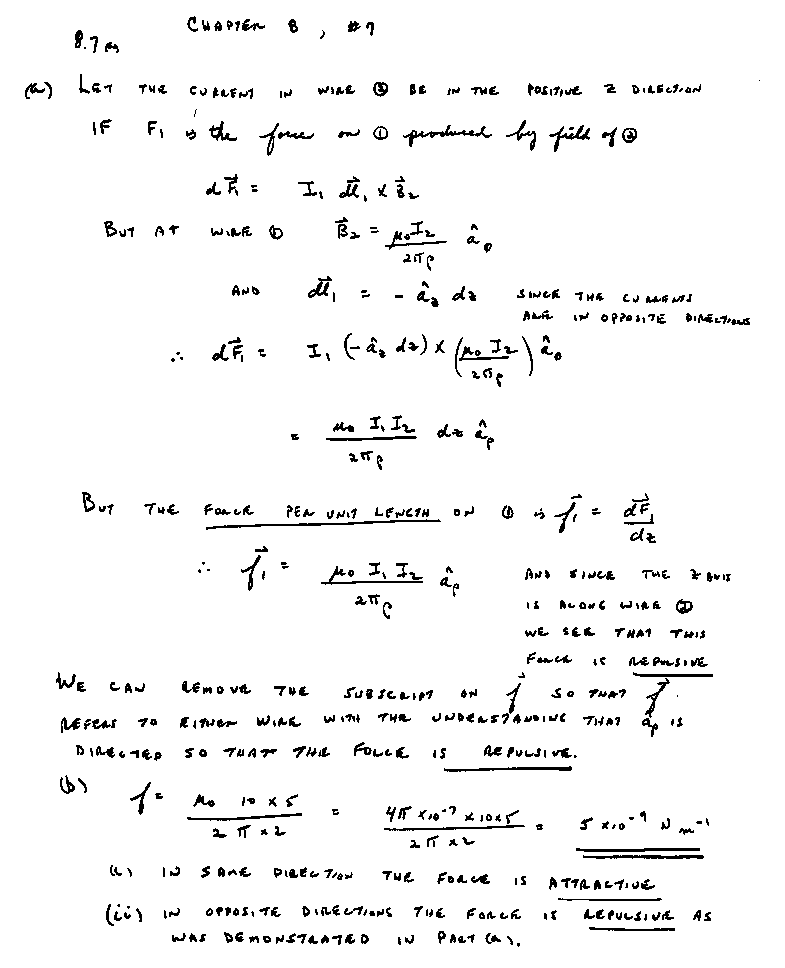 CHAPTER 8, #7
8.7
(a) LET THE CURRENT IN WIRE ② BE IN THE POSITIVE Z DIRECTION
IF F₁ is the force on ① produced by field of ②
dF⃗₁ = I₁ dl⃗₁ × B⃗₂
BUT AT WIRE ① B⃗₂ = μ₀I₂ / 2πρ â_φ
AND dl⃗₁ = - â_z dz SINCE THE CURRENTS
ARE IN OPPOSITE DIRECTIONS
∴ dF⃗₁ = I₁ (-â_z dz) × (μ₀ I₂ / 2πρ) â_φ
= μ₀ I₁ I₂ / 2πρ dz â_ρ
BUT THE FORCE PER UNIT LENGTH ON ① is f⃗₁ = dF⃗₁ / dz
∴ f⃗₁ = μ₀ I₁ I₂ / 2πρ â_ρ AND SINCE THE Z AXIS
IS ALONG WIRE ②
WE SEE THAT THIS
FORCE IS REPULSIVE
WE CAN REMOVE THE SUBSCRIPT ON f⃗ SO THAT f⃗
REFERS TO EITHER WIRE WITH THE UNDERSTANDING THAT â_ρ IS
DIRECTED SO THAT THE FORCE IS REPULSIVE.
(b) f = μ₀ 10 × 5 / 2π × 2 = 4π × 10⁻⁷ × 10 × 5 / 2π × 2 = 5 × 10⁻⁹ N m⁻¹
(i) IN SAME DIRECTION THE FORCE IS ATTRACTIVE
(ii) IN OPPOSITE DIRECTIONS THE FORCE IS REPULSIVE AS
WAS DEMONSTRATED IN PART (a).